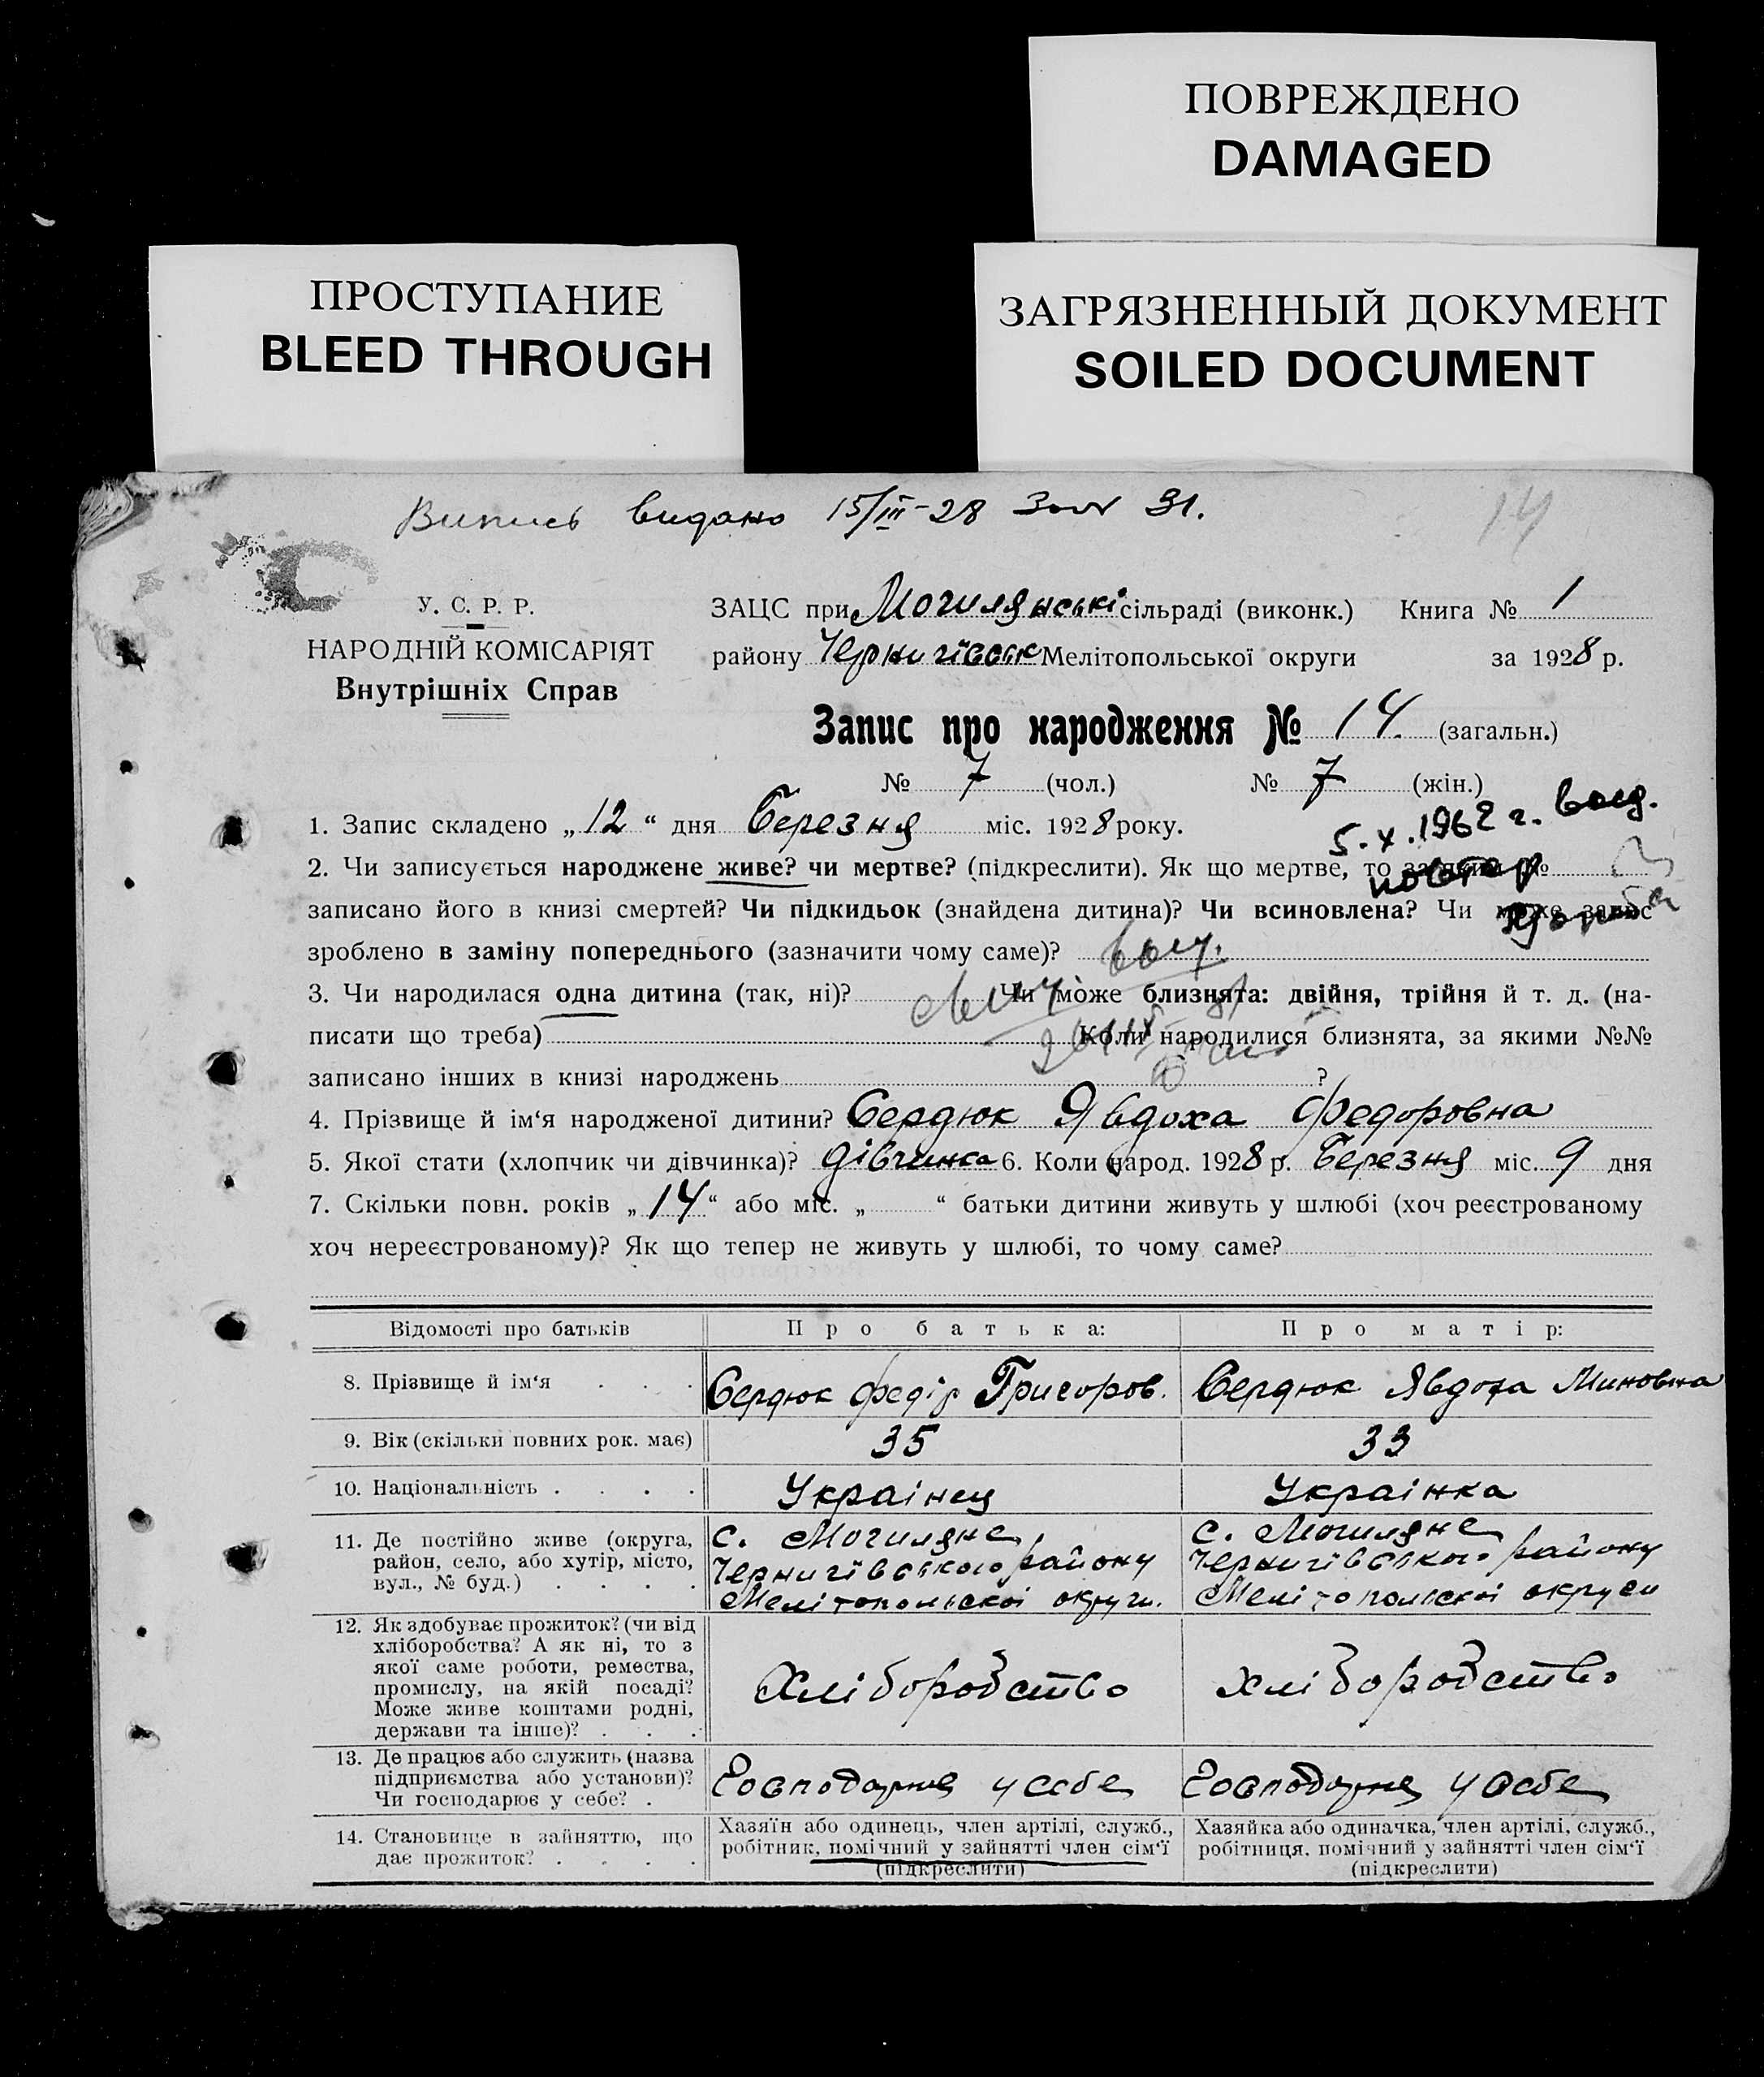 ПОВРЕЖДЕНО
DAMAGED
ПРОСТУПАНИЕ
BLEED THROUGH
ЗАГРЯЗНЕННЫЙ ДОКУМЕНТ
SOILED DOCUMENT
Випись видано 15/III-28 31.
14
У. С. Р. Р.
НАРОДНІЙ КОМІСАРІЯТ
Внутрішніх Справ
ЗАЦС при Могилянські сільраді (виконк.) Книга № 1
району Чернигівськ Мелітопольської округи за 1928 р.
Запис про народження № 14. (загальн.)
№ 7 (чол.) № 7 (жін.)
1. Запис складено „12“ дня Березня міс. 1928 року.
5.X.1962 г. выд.
повтор
2. Чи записується народжене живе? чи мертве? (підкреслити). Як що мертве, то за яким №
записано його в книзі смертей? Чи підкидьок (знайдена дитина)? Чи всиновлена? Чи може запис
зроблено в заміну попереднього (зазначити чому саме)?
3. Чи народилася одна дитина (так, ні)? Чи може близнята: двійня, трійня й т. д. (на-
писати що треба) Коли народилися близнята, за якими №№
записано інших в книзі народжень ?
4. Прізвище й ім‘я народженої дитини? Сердюк Явдоха Федоровна
5. Якої стати (хлопчик чи дівчинка)? дівчинка 6. Коли народ. 1928 р. Березня міс. 9 дня
7. Скільки повн. років „14“ або міс. „ “ батьки дитини живуть у шлюбі (хоч реєстрованому
хоч нереєстрованому)? Як що тепер не живуть у шлюбі, то чому саме?
Відомості про батьків Про батька: Про матір:
8. Прізвище й ім‘я . . . Сердюк Федір Григоров. Сердюк Явдоха Миновна
9. Вік (скільки повних рок. має) 35 33
10. Національність . . . . Украінец Украінка
11. Де постійно живе (округа, район, село, або хутір, місто, вул., № буд.) . . . .
с. Могиляне
Чернигівського району
Мелітопольскоі округи.
с. Могиляне
Чернигівського району
Мелітопольскоі округи
12. Як здобуває прожиток? (чи від
хліборобства? А як ні, то з
якої саме роботи, ремества,
промислу, на якій посаді?
Може живе коштами родні,
держави та інше)? . . .
Хлібородство Хлібородство
13. Де працює або служить (назва
підприємства або установи)?
Чи господарює у себе? .
Господарює у себе Господарює у себе
14. Становище в зайняттю, що
дає прожиток? . . . .
Хазяїн або одинець, член артілі, служб.,
робітник, помічний у зайнятті член сім‘ї
(підкреслити)
Хазяйка або одиначка, член артілі, служб.,
робітниця, помічний у зайнятті член сім‘ї
(підкреслити)